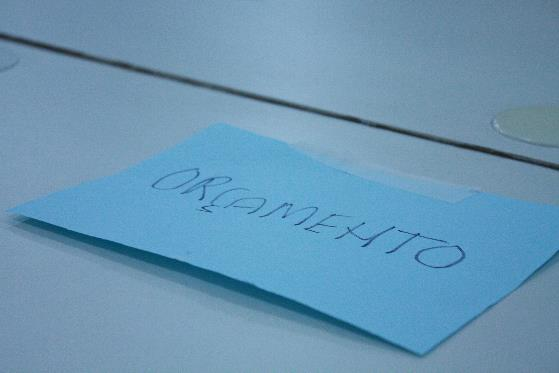 ORÇAMENTO